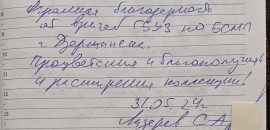 Огромная благодарность
от врачей ГБУЗ НО БСМП
г. Дзержинска.
Процветания и благополучия
и расширения коллекции!
31.05.24г.
Лазарев С.А.